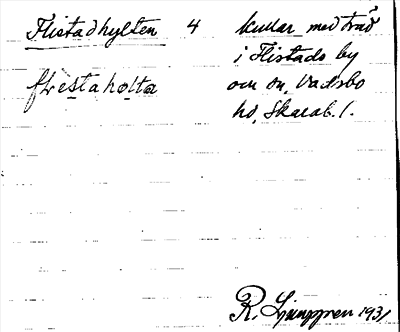 Flistadhylten 4 kullar med träd
flestahølta i Flistads by
och sn, Vadsbo
hd, Skarab. l.
R. Ljunggren 1931